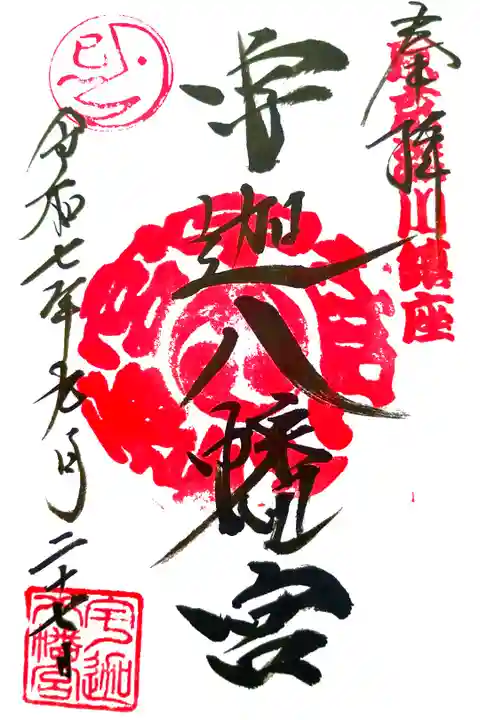 奉拝
宇迦八幡宮
令和七年九月二十七日
宇迦八幡宮
巳